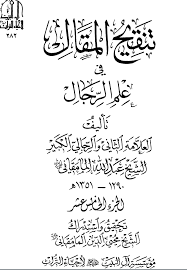 ٣٨٢
تنقيح المقال
في
علم الرجال
تأليف
العلامة الثاني والرجالي الكبير
الشيخ عبد الله المامقاني
١٢٩٠ - ١٣٥١ هـ
الجزء الخامس عشر
تحقيق واستدراك
الشيخ محيي الدين المامقاني
مؤسسة آل البيت لإحياء التراث